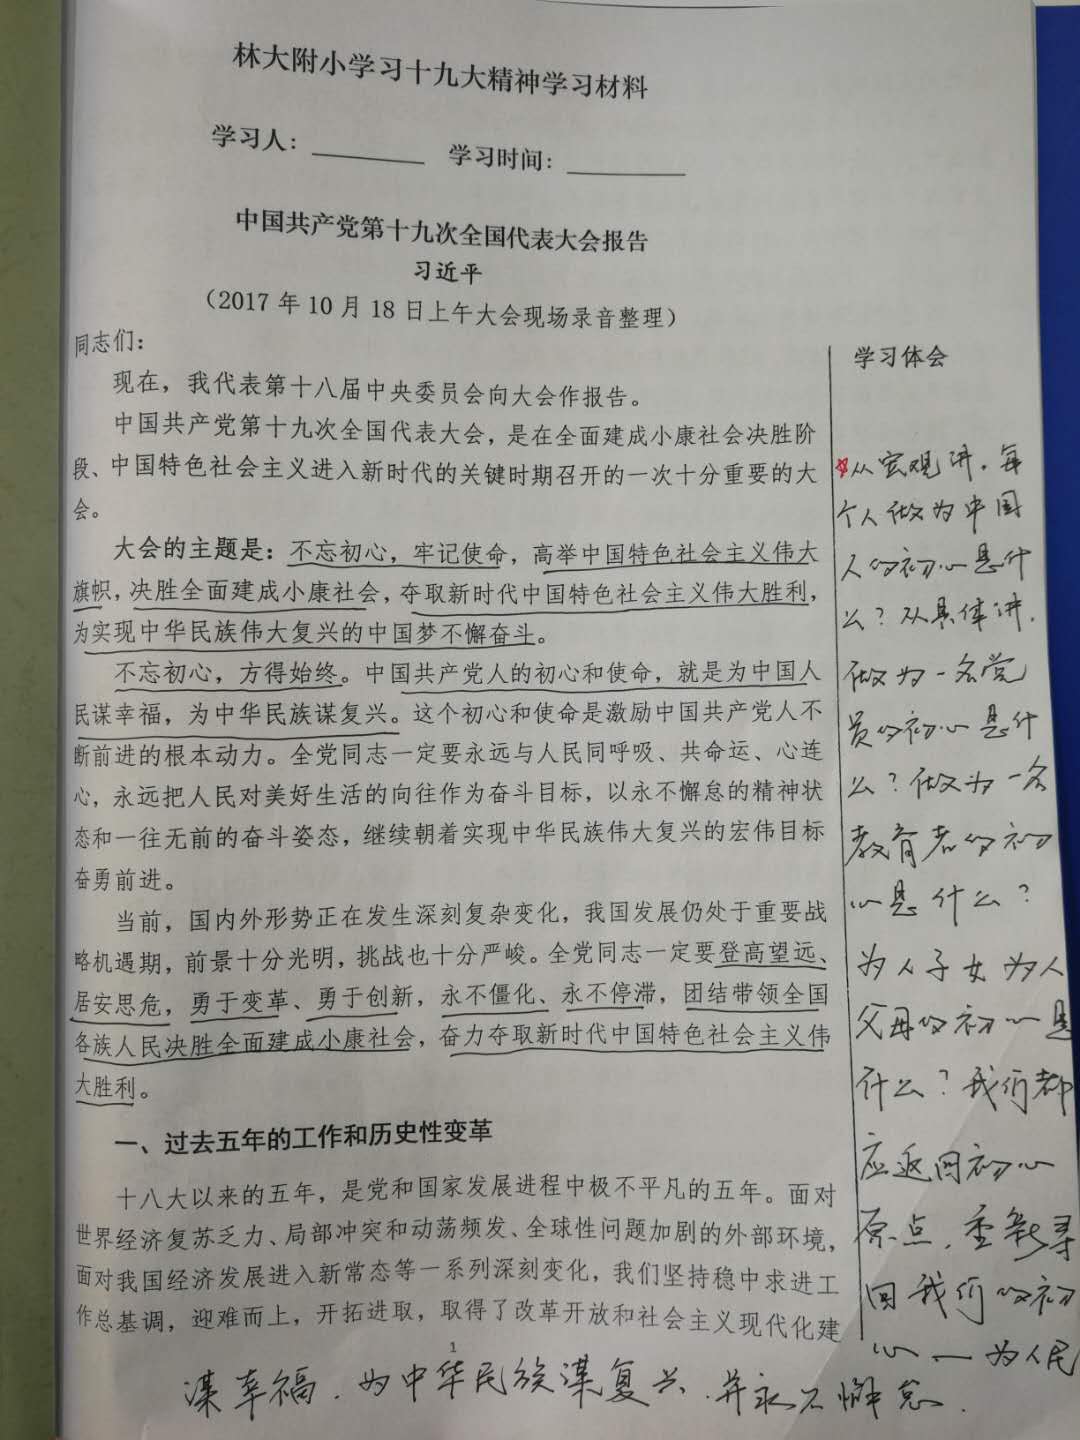 林大附小学习十九大精神学习材料
学习人：________ 学习时间：________
中国共产党第十九次全国代表大会报告
习近平
（2017 年 10 月 18 日上午大会现场录音整理）
同志们：
现在，我代表第十八届中央委员会向大会作报告。
中国共产党第十九次全国代表大会，是在全面建成小康社会决胜阶
段、中国特色社会主义进入新时代的关键时期召开的一次十分重要的大
会。
大会的主题是：不忘初心，牢记使命，高举中国特色社会主义伟大
旗帜，决胜全面建成小康社会，夺取新时代中国特色社会主义伟大胜利，
为实现中华民族伟大复兴的中国梦不懈奋斗。
不忘初心，方得始终。中国共产党人的初心和使命，就是为中国人
民谋幸福，为中华民族谋复兴。这个初心和使命是激励中国共产党人不
断前进的根本动力。全党同志一定要永远与人民同呼吸、共命运、心连
心，永远把人民对美好生活的向往作为奋斗目标，以永不懈怠的精神状
态和一往无前的奋斗姿态，继续朝着实现中华民族伟大复兴的宏伟目标
奋勇前进。
当前，国内外形势正在发生深刻复杂变化，我国发展仍处于重要战
略机遇期，前景十分光明，挑战也十分严峻。全党同志一定要登高望远、
居安思危，勇于变革、勇于创新，永不僵化、永不停滞，团结带领全国
各族人民决胜全面建成小康社会，奋力夺取新时代中国特色社会主义伟
大胜利。
一、过去五年的工作和历史性变革
十八大以来的五年，是党和国家发展进程中极不平凡的五年。面对
世界经济复苏乏力、局部冲突和动荡频发、全球性问题加剧的外部环境，
面对我国经济发展进入新常态等一系列深刻变化，我们坚持稳中求进工
作总基调，迎难而上，开拓进取，取得了改革开放和社会主义现代化建
1
学习体会
☆从宏观讲，每
个人做为中国
人的初心是什
么？从具体讲，
做为一名党
员的初心是什
么？做为一名
教育者的初
心是什么？
为人子女为人
父母的初心是
什么？我们都
应返回初心
原点，重新寻
回我们的初
心——为人民
谋幸福，为中华民族谋复兴，并永不懈怠。